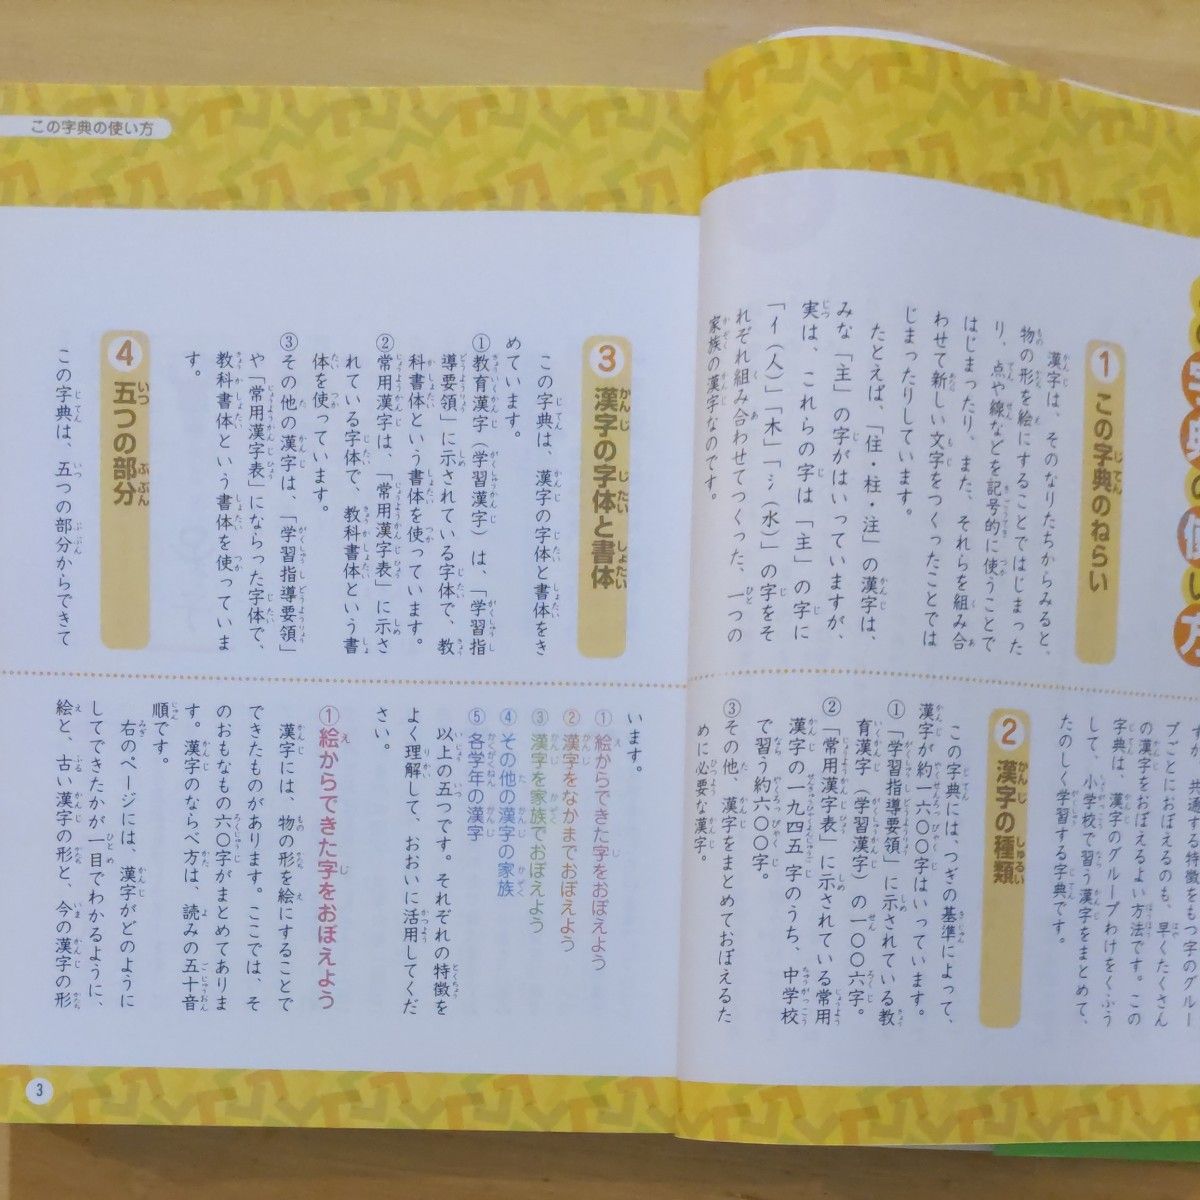 この字典の使い方
字典の使い方
1 この字典のねらい
漢字は、そのなりたちからみると、
物の形を絵にすることではじまった
り、点や線などを記号的に使うことで
はじまったり、また、それらを組み合
わせて新しい文字をつくったことでは
じまったりしています。
たとえば、「住・柱・注」の漢字は、
みな「主」の字がはいっていますが、
実は、これらの字は「主」の字に
「亻(人)」「木」「氵(水)」の字をそ
れぞれ組み合わせてつくった、一つの
家族の漢字なのです。
共通する特徴をもつ字のグルー
プごとにおぼえるのも、早くたくさん
の漢字をおぼえるよい方法です。この
字典は、漢字のグループわけをくふう
して、小学校で習う漢字をまとめて、
たのしく学習する字典です。
2 漢字の種類
この字典には、つぎの基準によって、
漢字が約一六〇〇字はいっています。
①「学習指導要領」に示されている教
育漢字(学習漢字)の一〇〇六字。
②「常用漢字表」に示されている常用
漢字の一九四五字のうち、中学校
で習う約六〇〇字。
③その他、漢字をまとめておぼえるた
めに必要な漢字。
3 漢字の字体と書体
この字典は、漢字の字体と書体をき
めています。
①教育漢字(学習漢字)は、「学習指
導要領」に示されている字体で、教
科書体という書体を使っています。
②常用漢字は、「常用漢字表」に示さ
れている字体で、教科書体という書
体を使っています。
③その他の漢字は、「学習指導要領」
や「常用漢字表」にならった字体で、
教科書体という書体を使っていま
す。
4 五つの部分
この字典は、五つの部分からできて
います。
①絵からできた字をおぼえよう
②漢字をなかまでおぼえよう
③漢字を家族でおぼえよう
④その他の漢字の家族
⑤各学年の漢字
以上の五つです。それぞれの特徴を
よく理解して、おおいに活用してくだ
さい。
①絵からできた字をおぼえよう
漢字には、物の形を絵にすることで
できたものがあります。ここでは、そ
のおもなもの六〇字がまとめてありま
す。漢字のならべ方は、読みの五十音
順です。
右のページには、漢字がどのように
してできたかが一目でわかるように、
絵と、古い漢字の形と、今の漢字の形
3